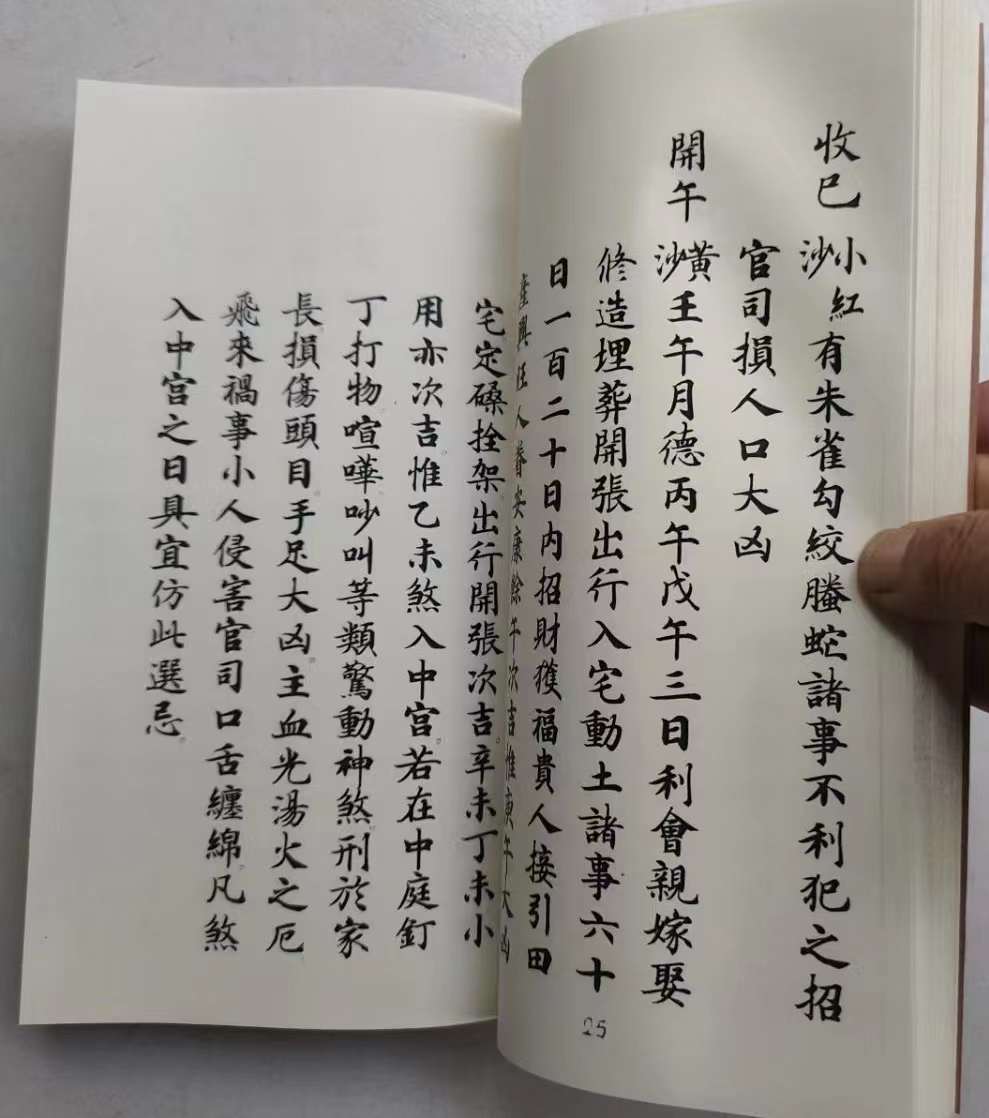 收巳 小紅沙有朱雀勾絞螣蛇諸事不利犯之招
官司損人口大凶
開午 黃沙壬午月德丙午戊午三日利會親嫁娶
修造埋葬開張出行入宅動土諸事六十
日一百二十日内招財獲福貴人接引田
產興旺人眷安康餘午次吉惟庚午大凶
25
宅定磉拴架出行開張次吉。辛未丁未小
用亦次吉惟乙未煞入中宮若在中庭釘
丁打物喧嘩吵叫等類驚動神煞刑於家
長損傷頭目手足大凶主血光湯火之厄
飛來禍事小人侵害官司口舌纏綿。凡煞
入中宮之日具宜仿此選忌。